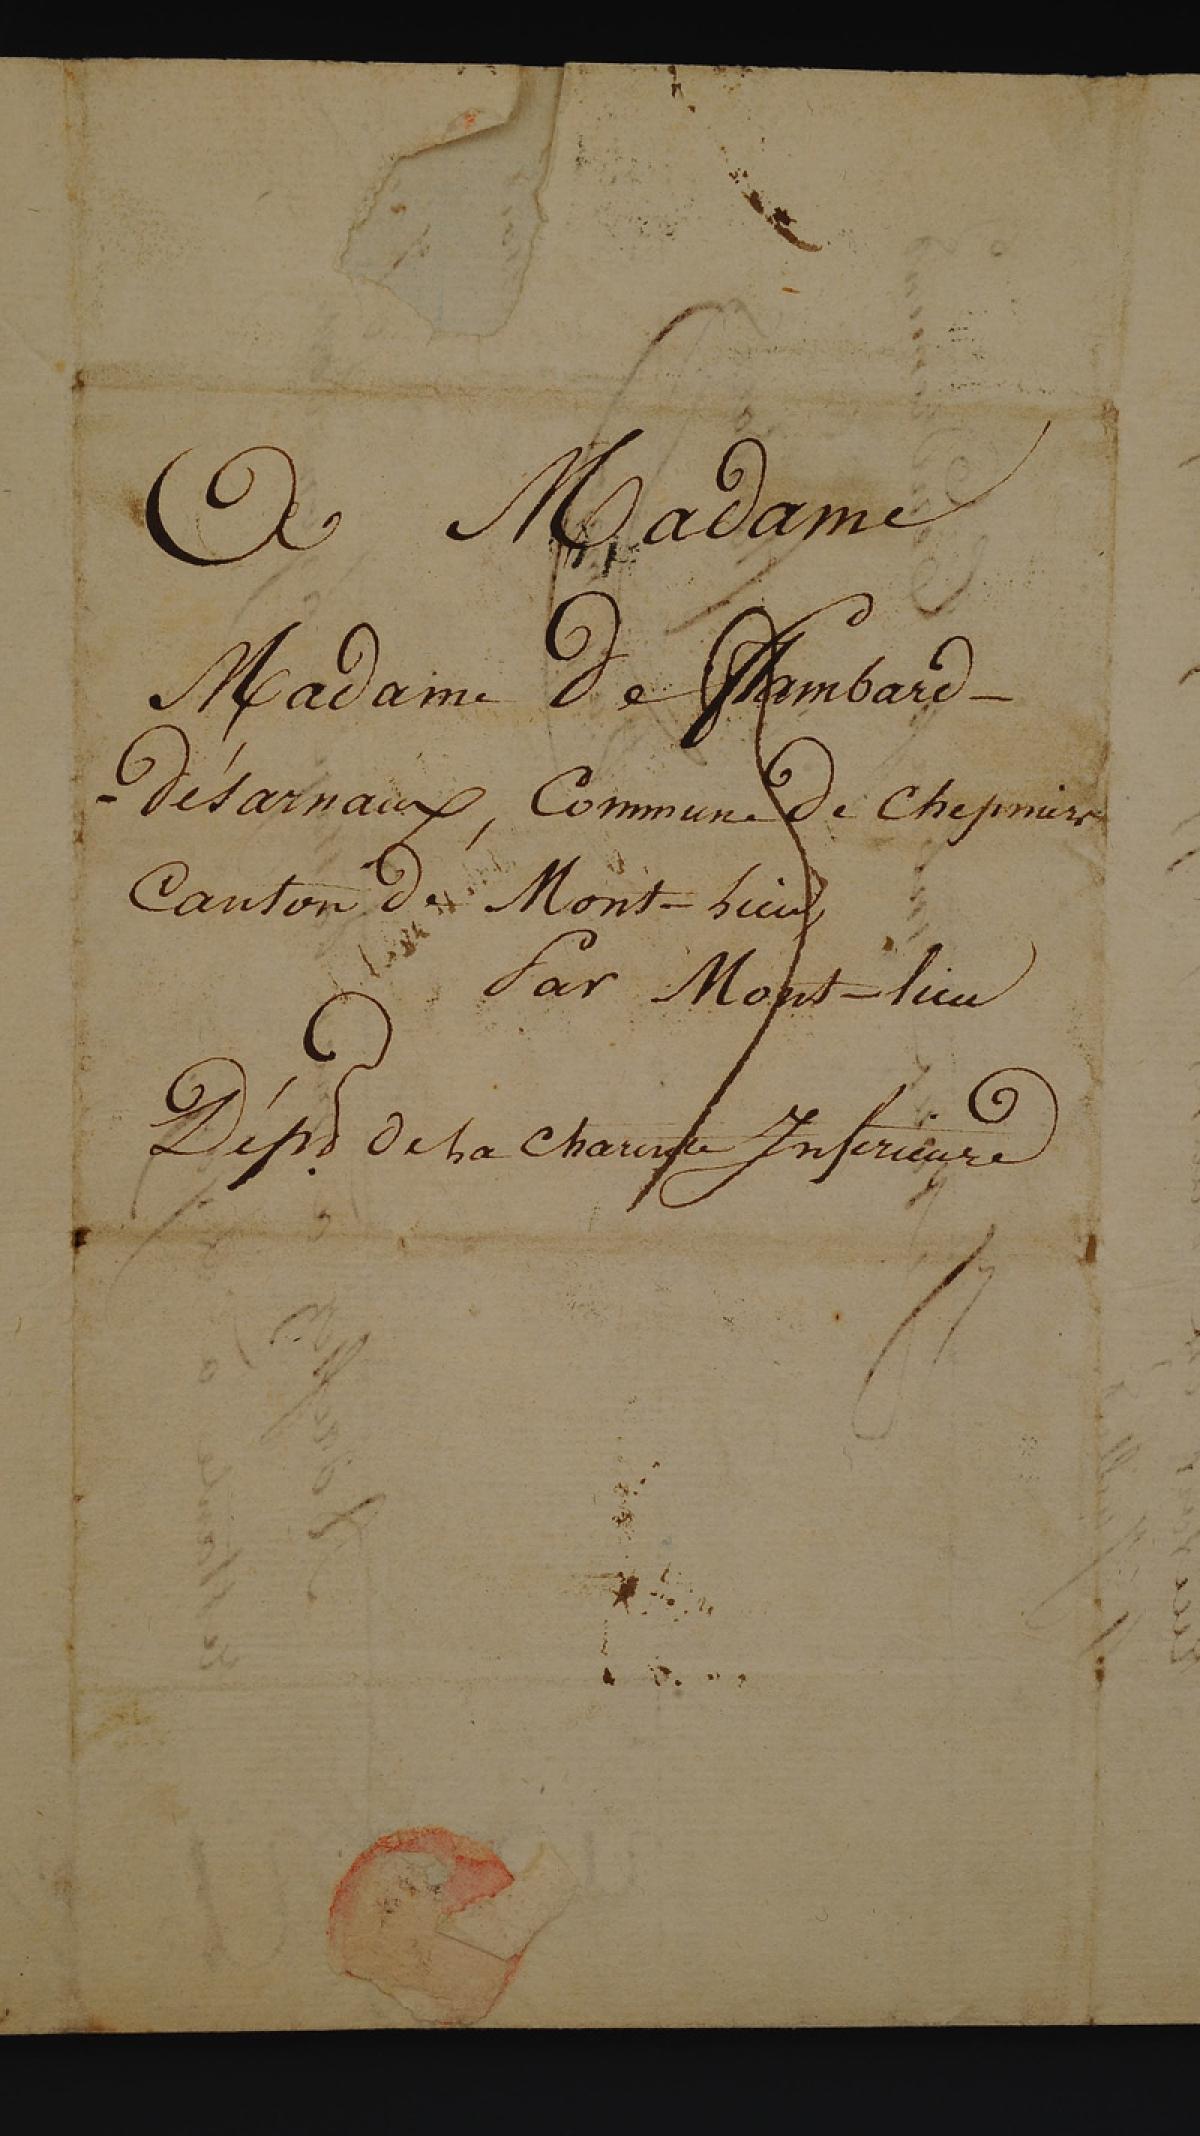 A Madame
Madame de Flambard-
-désarnaux, Commune de Chepniers
Canton de Mont-lieu
Par Mont-lieu
Dép.d de la Charente Inférieure